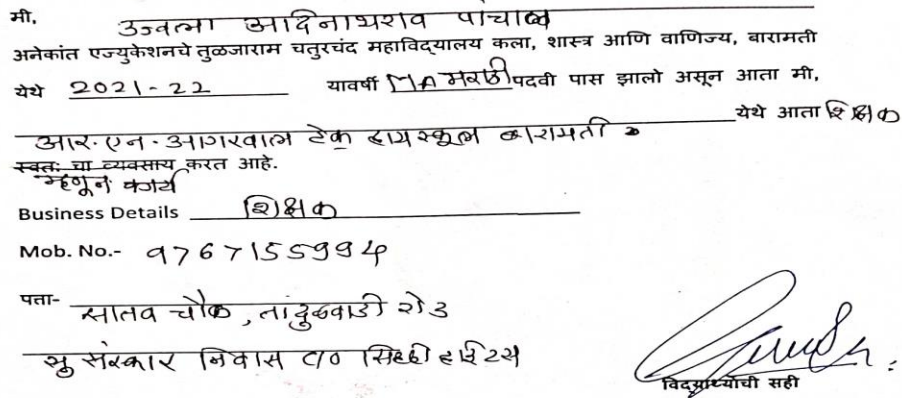 मी, उज्वला आदिनाथराव पांचाळ
अनेकांत एज्युकेशनचे तुळजाराम चतुरचंद महाविद्यालय कला, शास्त्र आणि वाणिज्य, बारामती
येथे 2021-22 यावर्षी MA मराठी पदवी पास झालो असून आता मी,
येथे आता शिक्षक
आर.एन.आगरवाल टेक हायस्कूल बारामती
स्वतः चा व्यवसाय करत आहे.
म्हणून कार्य
Business Details शिक्षक
Mob. No.- 9767155994
पत्ता- सातव चौक, तांदुळवाडी रोड
सु संस्कार निवास C/O सिद्धी हाईटस
विद्यार्थ्याची सही